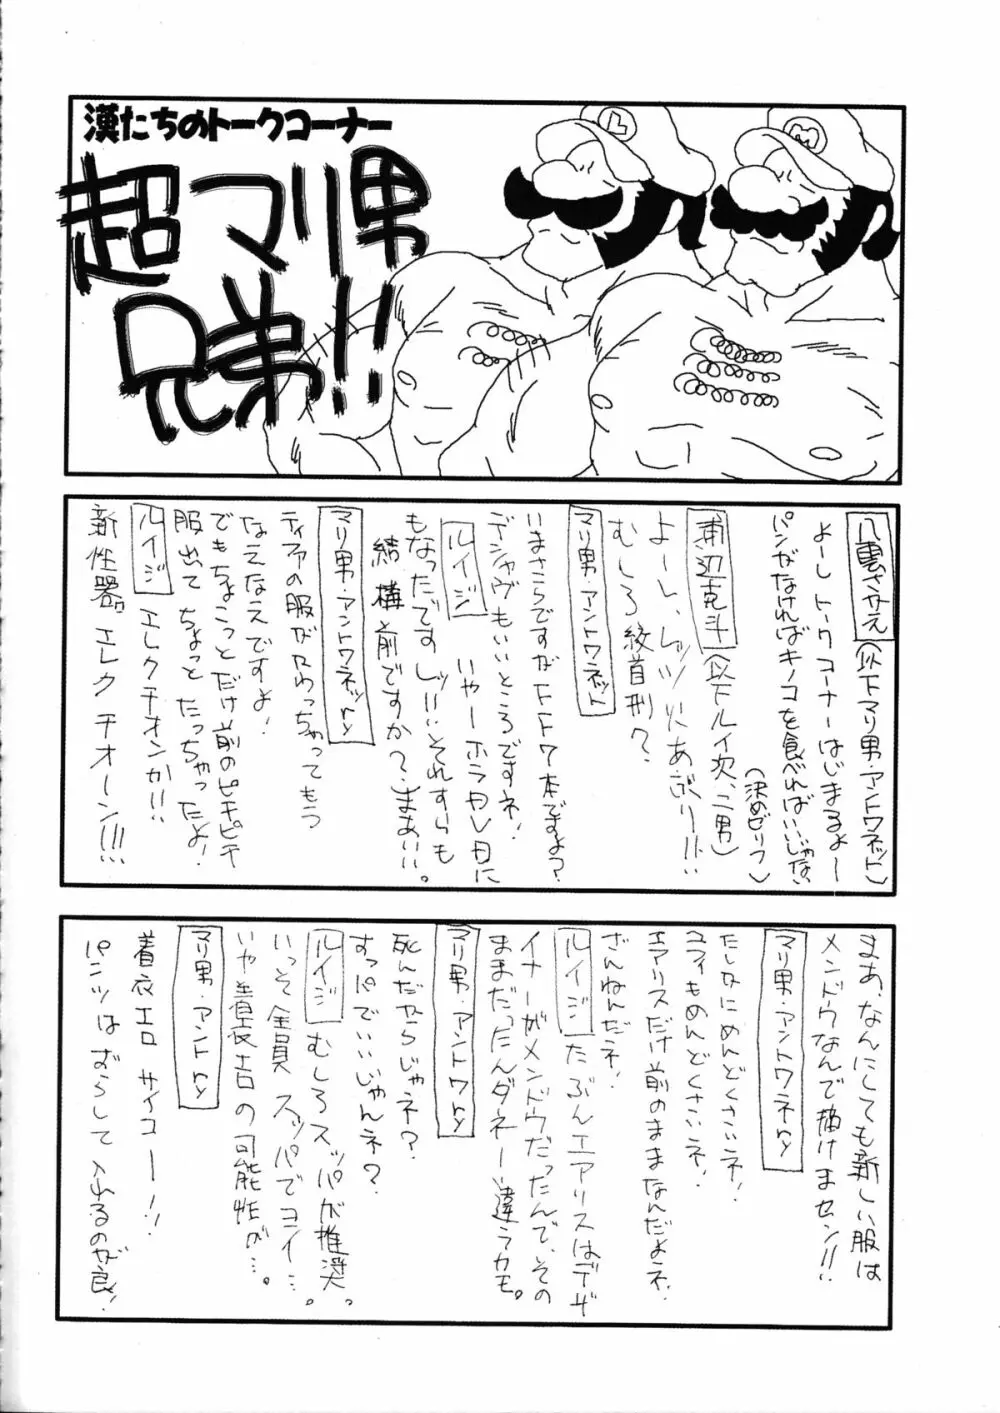 漢たちのトークコーナー
超マリ男
兄弟!!
L
M
八雲さかえ(以下マリ男・アントワネット)
よーしトークコーナーはじまるよー
パンがなければキノコを食べればいいじゃない
(決めゼリフ)
浦辺克斗(以下ルイ次、二男)
よーし、レッツ火あぶりー!!
むしろ絞首刑?
マリ男・アントワネット
いまさらですがFF7本ですよ?
デジャヴもいいところですネ!
ルイジ いやーホラカレ日に
もなったですしッ!!それすらも
結構前ですか?まあいい。
マリ男・アントワネッry
ティファの服がかわっちゃってもう
なえなえですよ!
でもちょこっとだけ前のピチピチ
服出てちょっとたっちゃったよ!
ルイジ エレクチオンか!!
新性器。エレクチオーン!!!
まあ、なんにしても新しい服は
メンドウなんで描けませセン!!
マリ男・アントワネry
たしかにめんどくさいネ!
ユフィもめんどくさいネ!
エアリスだけ前のままなんだよネ
ざんねんだネ!
ルイジ たぶんエアリスはデザ
イナーがメンドウだったんで、その
ままだったんダネー違うカモ。
マリ男・アントワry
死んだからじゃネ?
すっパでいいじゃんネ?
ルイジ むしろスッパが推奨。
いっそ全員スッパでヨイ…。
いや着衣エロの可能性が…。
マリ男・アントry
着衣エロサイコー!!
パンツはずらして入れるのが良!